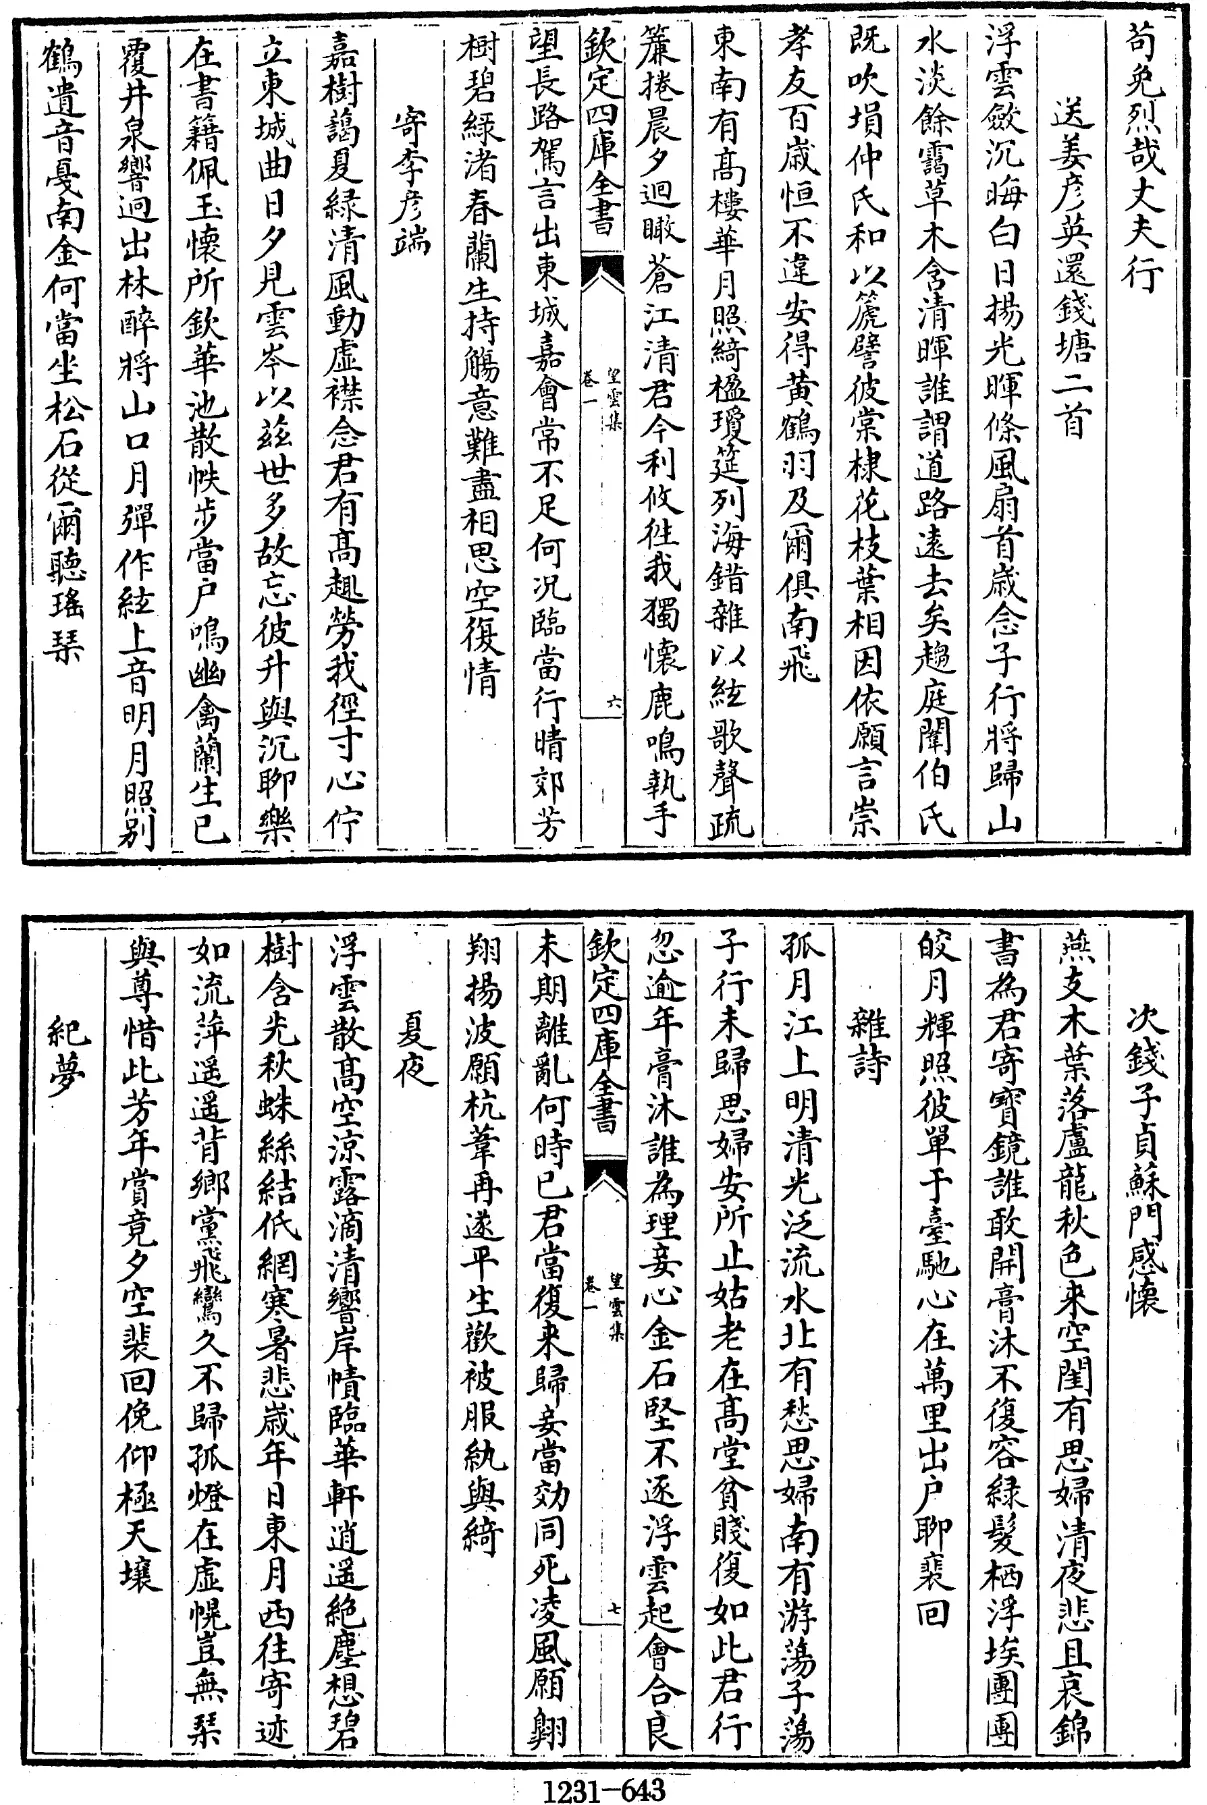 苟免烈哉丈夫行
送姜彥英還錢塘二首
浮雲斂沉晦白日揚光暉條風扇首歲念子行將歸山
水淡餘靄草木含清暉誰謂道路遠去矣趨庭闈伯氏
既吹塤仲氏和以篪譬彼棠棣花枝葉相因依願言崇
孝友百歲恒不違安得黃鶴羽及爾俱南飛
東南有髙樓華月照綺楹瓊筵列海錯雜以絃歌聲疏
簾捲晨夕迴瞰蒼江清君今利攸徃我獨懷鹿鳴執手
欽定四庫全書
望雲集
卷一
六
望長路駕言出東城嘉會常不足何況臨當行晴郊芳
樹碧緑渚春蘭生持觴意難盡相思空復情
寄李彥端
嘉樹藹夏緑清風動虛襟念君有髙趣勞我徑寸心佇
立東城曲日夕見雲岑以兹世多故忘彼升與沉聊樂
在書籍佩玉懷所欽華池散帙步當户鳴幽禽蘭生已
覆井泉響迥出林醉將山口月彈作絃上音明月照别
鶴遺音戛南金何當坐松石從爾聽瑤琹
次錢子貞蘇門感懷
燕支木葉落盧龍秋色来空閨有思婦清夜悲且哀錦
書為君寄寶鏡誰敢開膏沐不復容緑髮栖浮埃團團
皎月輝照彼單于臺馳心在萬里出户聊裴回
雜詩
孤月江上明清光泛流水北有愁思婦南有游蕩子蕩
子行未歸思婦安所止姑老在髙堂貧賤復如此君行
忽逾年膏沐誰為理妾心金石堅不逐浮雲起會合良
欽定四庫全書
望雲集
卷一
七
未期離亂何時已君當復来歸妾當効同死凌風願翺
翔揚波願杭葦再遂平生歡被服紈與綺
夏夜
浮雲散髙空凉露滴清響岸幘臨華軒逍遥絶塵想碧
樹含光秋蛛絲結低網寒暑悲歲年日東月西往寄迹
如流萍遥遥背鄉黨飛鸞久不歸孤燈在虛幌豈無琹
與尊惜此芳年賞竟夕空裴回俛仰極天壤
紀夢
1231-643